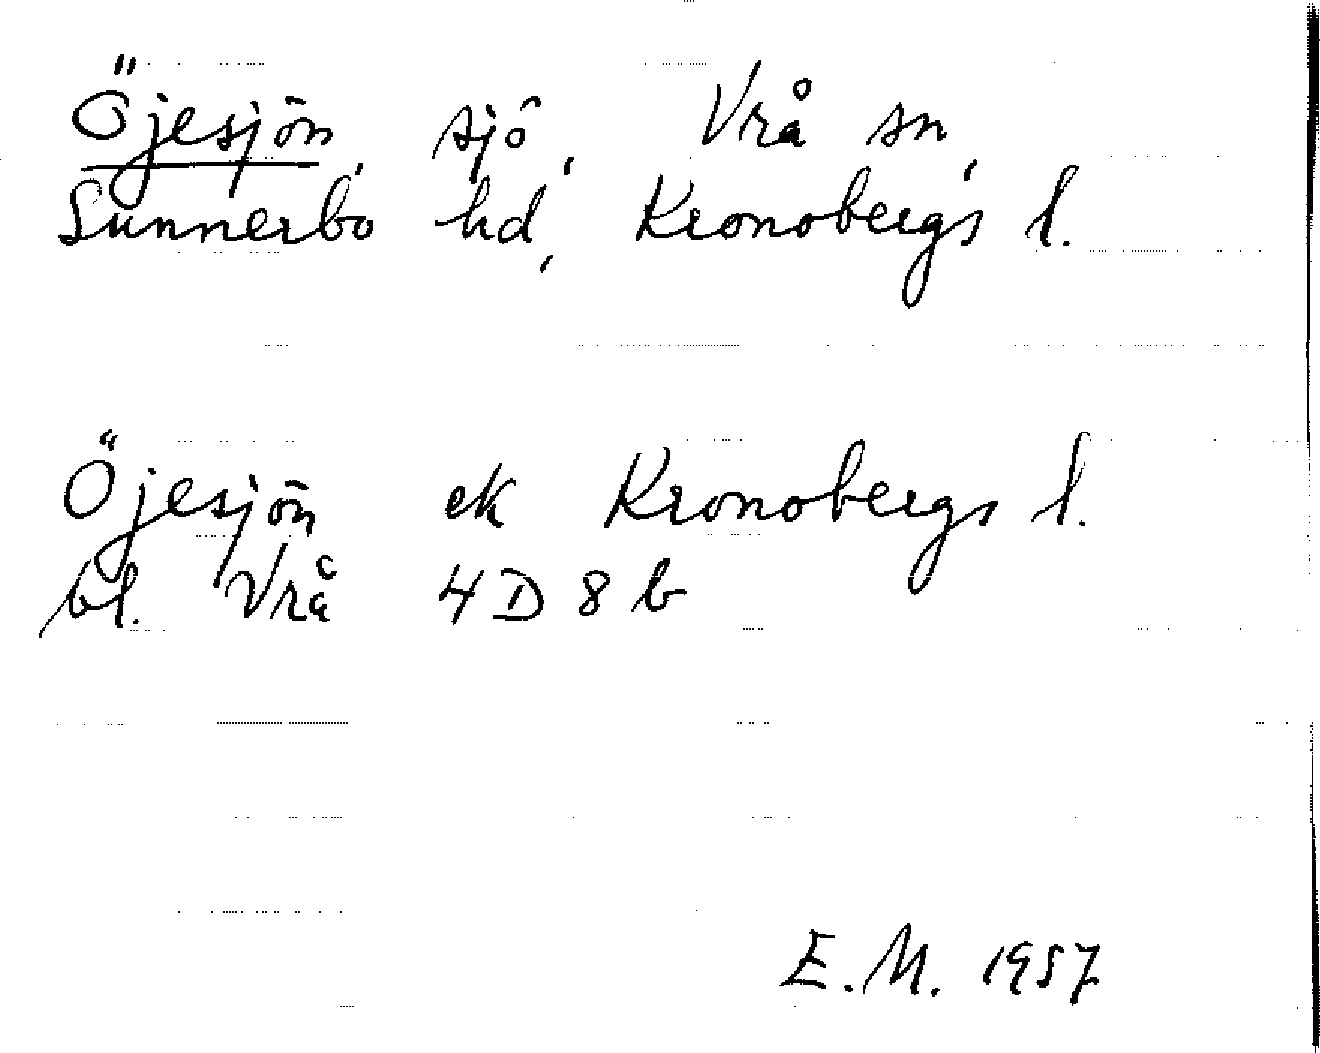 Öjesjön, sjö, Vrå sn,
Sunnerbo hd, Kronobergs l.
Öjesjön ek Kronobergs l.
bl. Vrå 4D8b
E.M. 1957